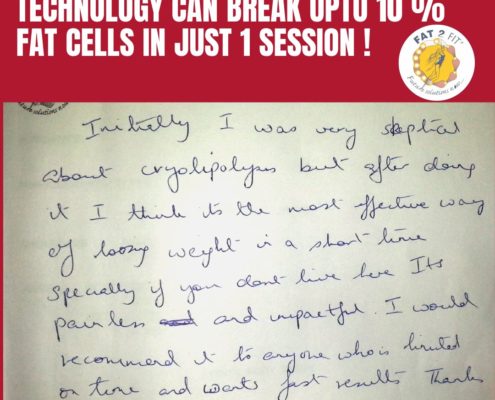 TECHNOLOGY CAN BREAK UPTO 10 %
FAT CELLS IN JUST 1 SESSION !
FAT 2 FIT
Initially I was very skeptical
about cryolipolysis but after doing
it I think its the most effective way
of loosing weight in a short time
specially if you dont live here Its
painless and impactful. I would
recommend it to anyone who is limited
on time and wants fast results Thanks